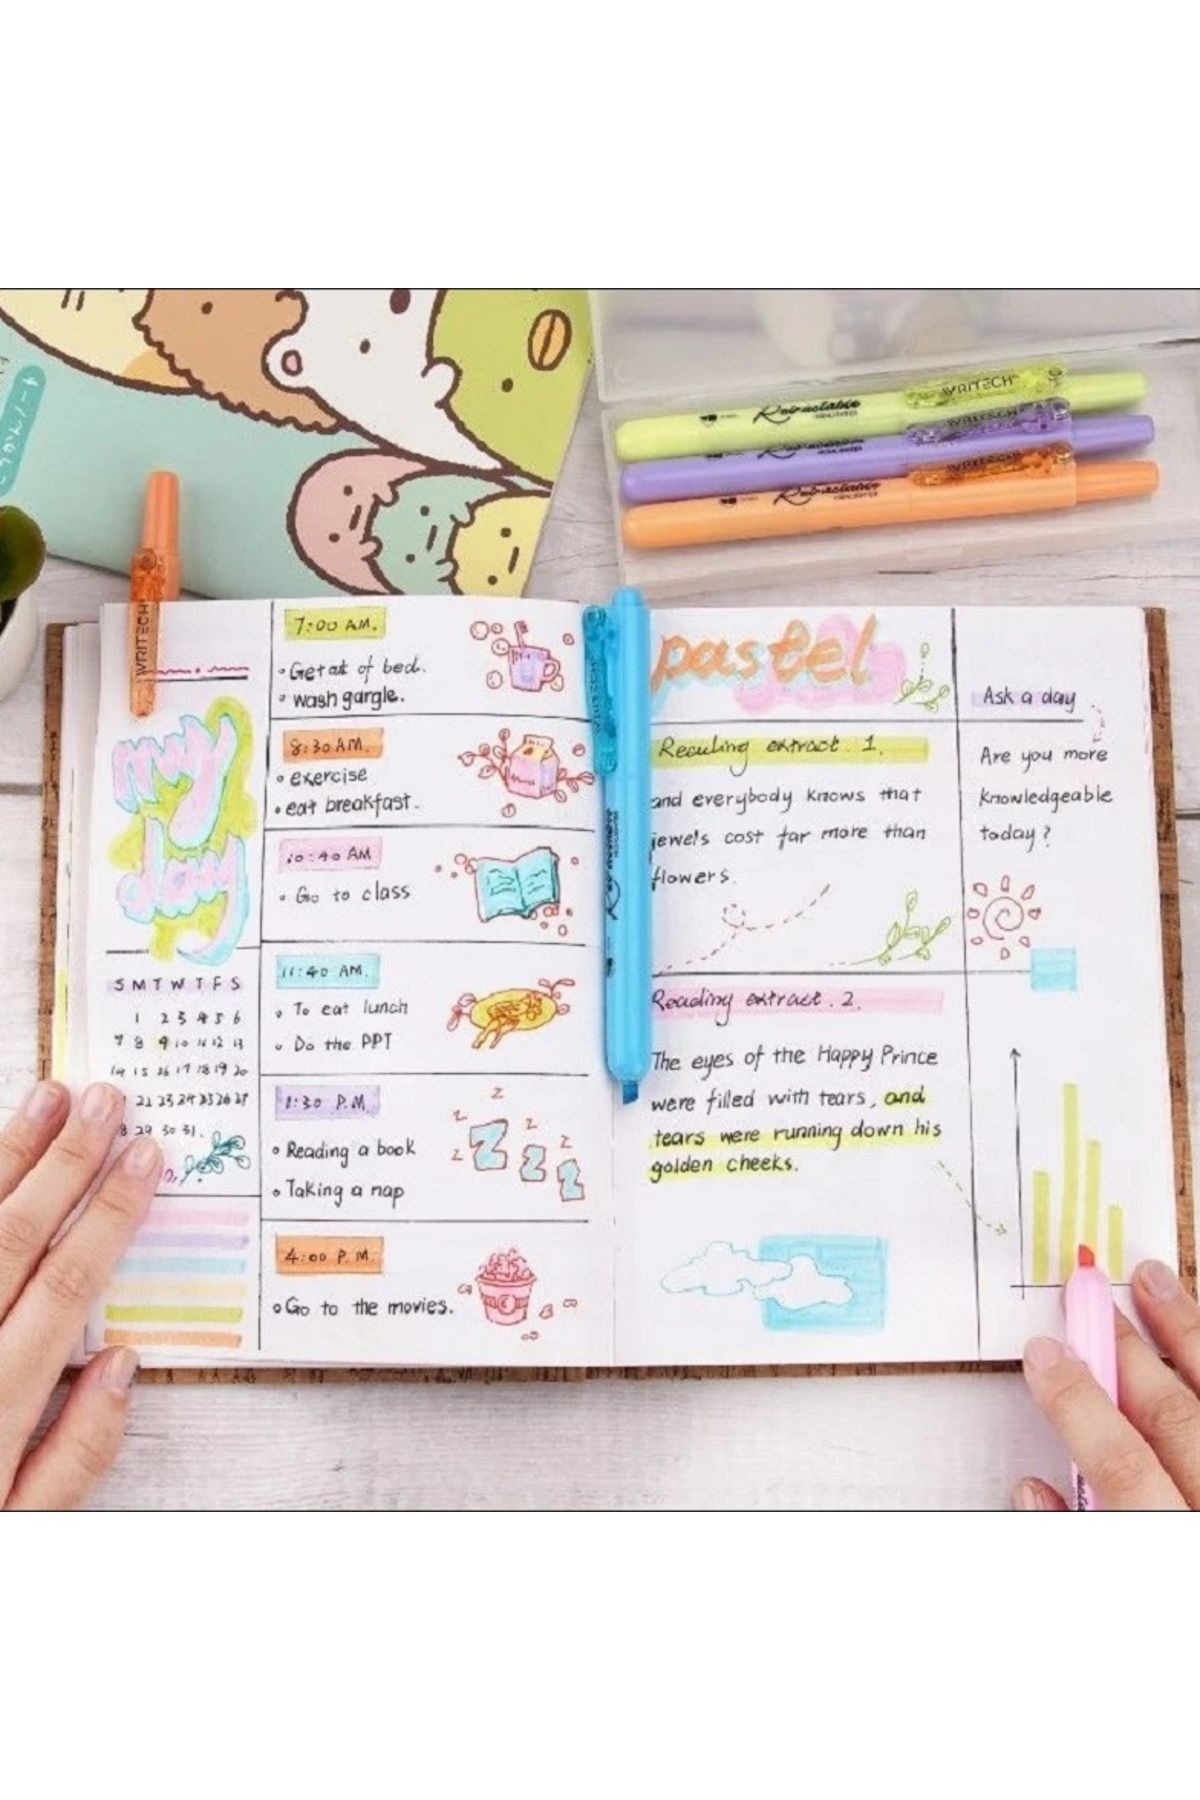 WRITECH
Retractable
HIGHLIGHTER
WRITECH
Retractable
HIGHLIGHTER
WRITECH
Retractable
HIGHLIGHTER
WRITECH
my
day
S M T W T F S
1 2 3 4 5 6
7 8 9 10 11 12 13
14 15 16 17 18 19 20
22 23 24 25 26 27
29 30 31.
7:00 AM.
Get out of bed.
wash gargle.
8:30 AM.
exercise
eat breakfast.
10:40 AM
Go to class
11:40 AM.
To eat lunch
Do the PPT
1:30 P.M.
Reading a book
Taking a nap
z
z z
z Z Z z
Z
4:00 P.M.
Go to the movies.
WRITECH
Retractable
HIGHLIGHTER
pastel
Reading extract. 1.
and everybody knows that
jewels cost far more than
flowers.
Reading extract. 2.
The eyes of the Happy Prince
were filled with tears, and
tears were running down his
golden cheeks.
Ask a day
Are you more
knowledgeable
today?